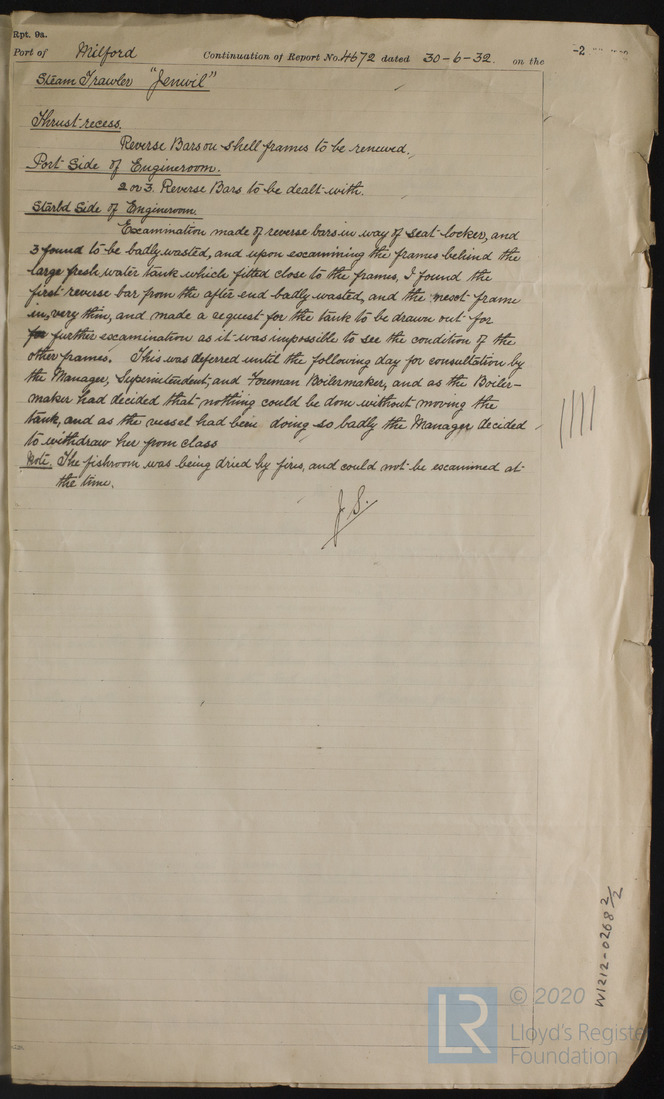 Rpt. 9a.
Port of Milford Continuation of Report No. 4672 dated 30-6-32. on the
-2
Steam Trawler "Jenwil"
Thrust recess.
Reverse Bars on shell frames to be renewed.
Port Side of Engineroom.
2 or 3. Reverse Bars to be dealt with.
Starbd Side of Engineroom.
Examination made of reverse bars in way of seat locker, and
3 found to be badly wasted, and upon examining the frames behind the
large fresh water tank which fitted close to the frames, I found the
first reverse bar from the after end badly wasted, and the next frame
in, very thin, and made a request for the tank to be drawn out for
for further examination as it was impossible to see the condition of the
other frames. This was deferred until the following day for consultation by
the Manager, Superintendent, and Foreman Boilermaker, and as the Boiler-
maker had decided that nothing could be done without moving the
tank, and as the vessel had been doing so badly the Manager decided
to withdraw her from class
Note. The fishroom was being dried by fires, and could not be examined at
the time.
J. S.
W1212-0268 2/2
LR
© 2020
Lloyd's Register
Foundation